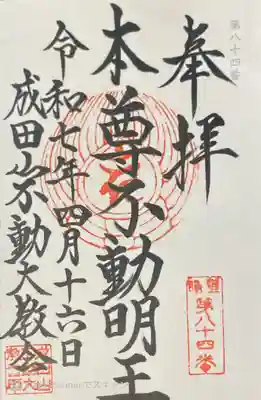 第八十四番
奉拝
本尊不動明王
令和七年四月十六日
成田山不動大教会
第八十四番